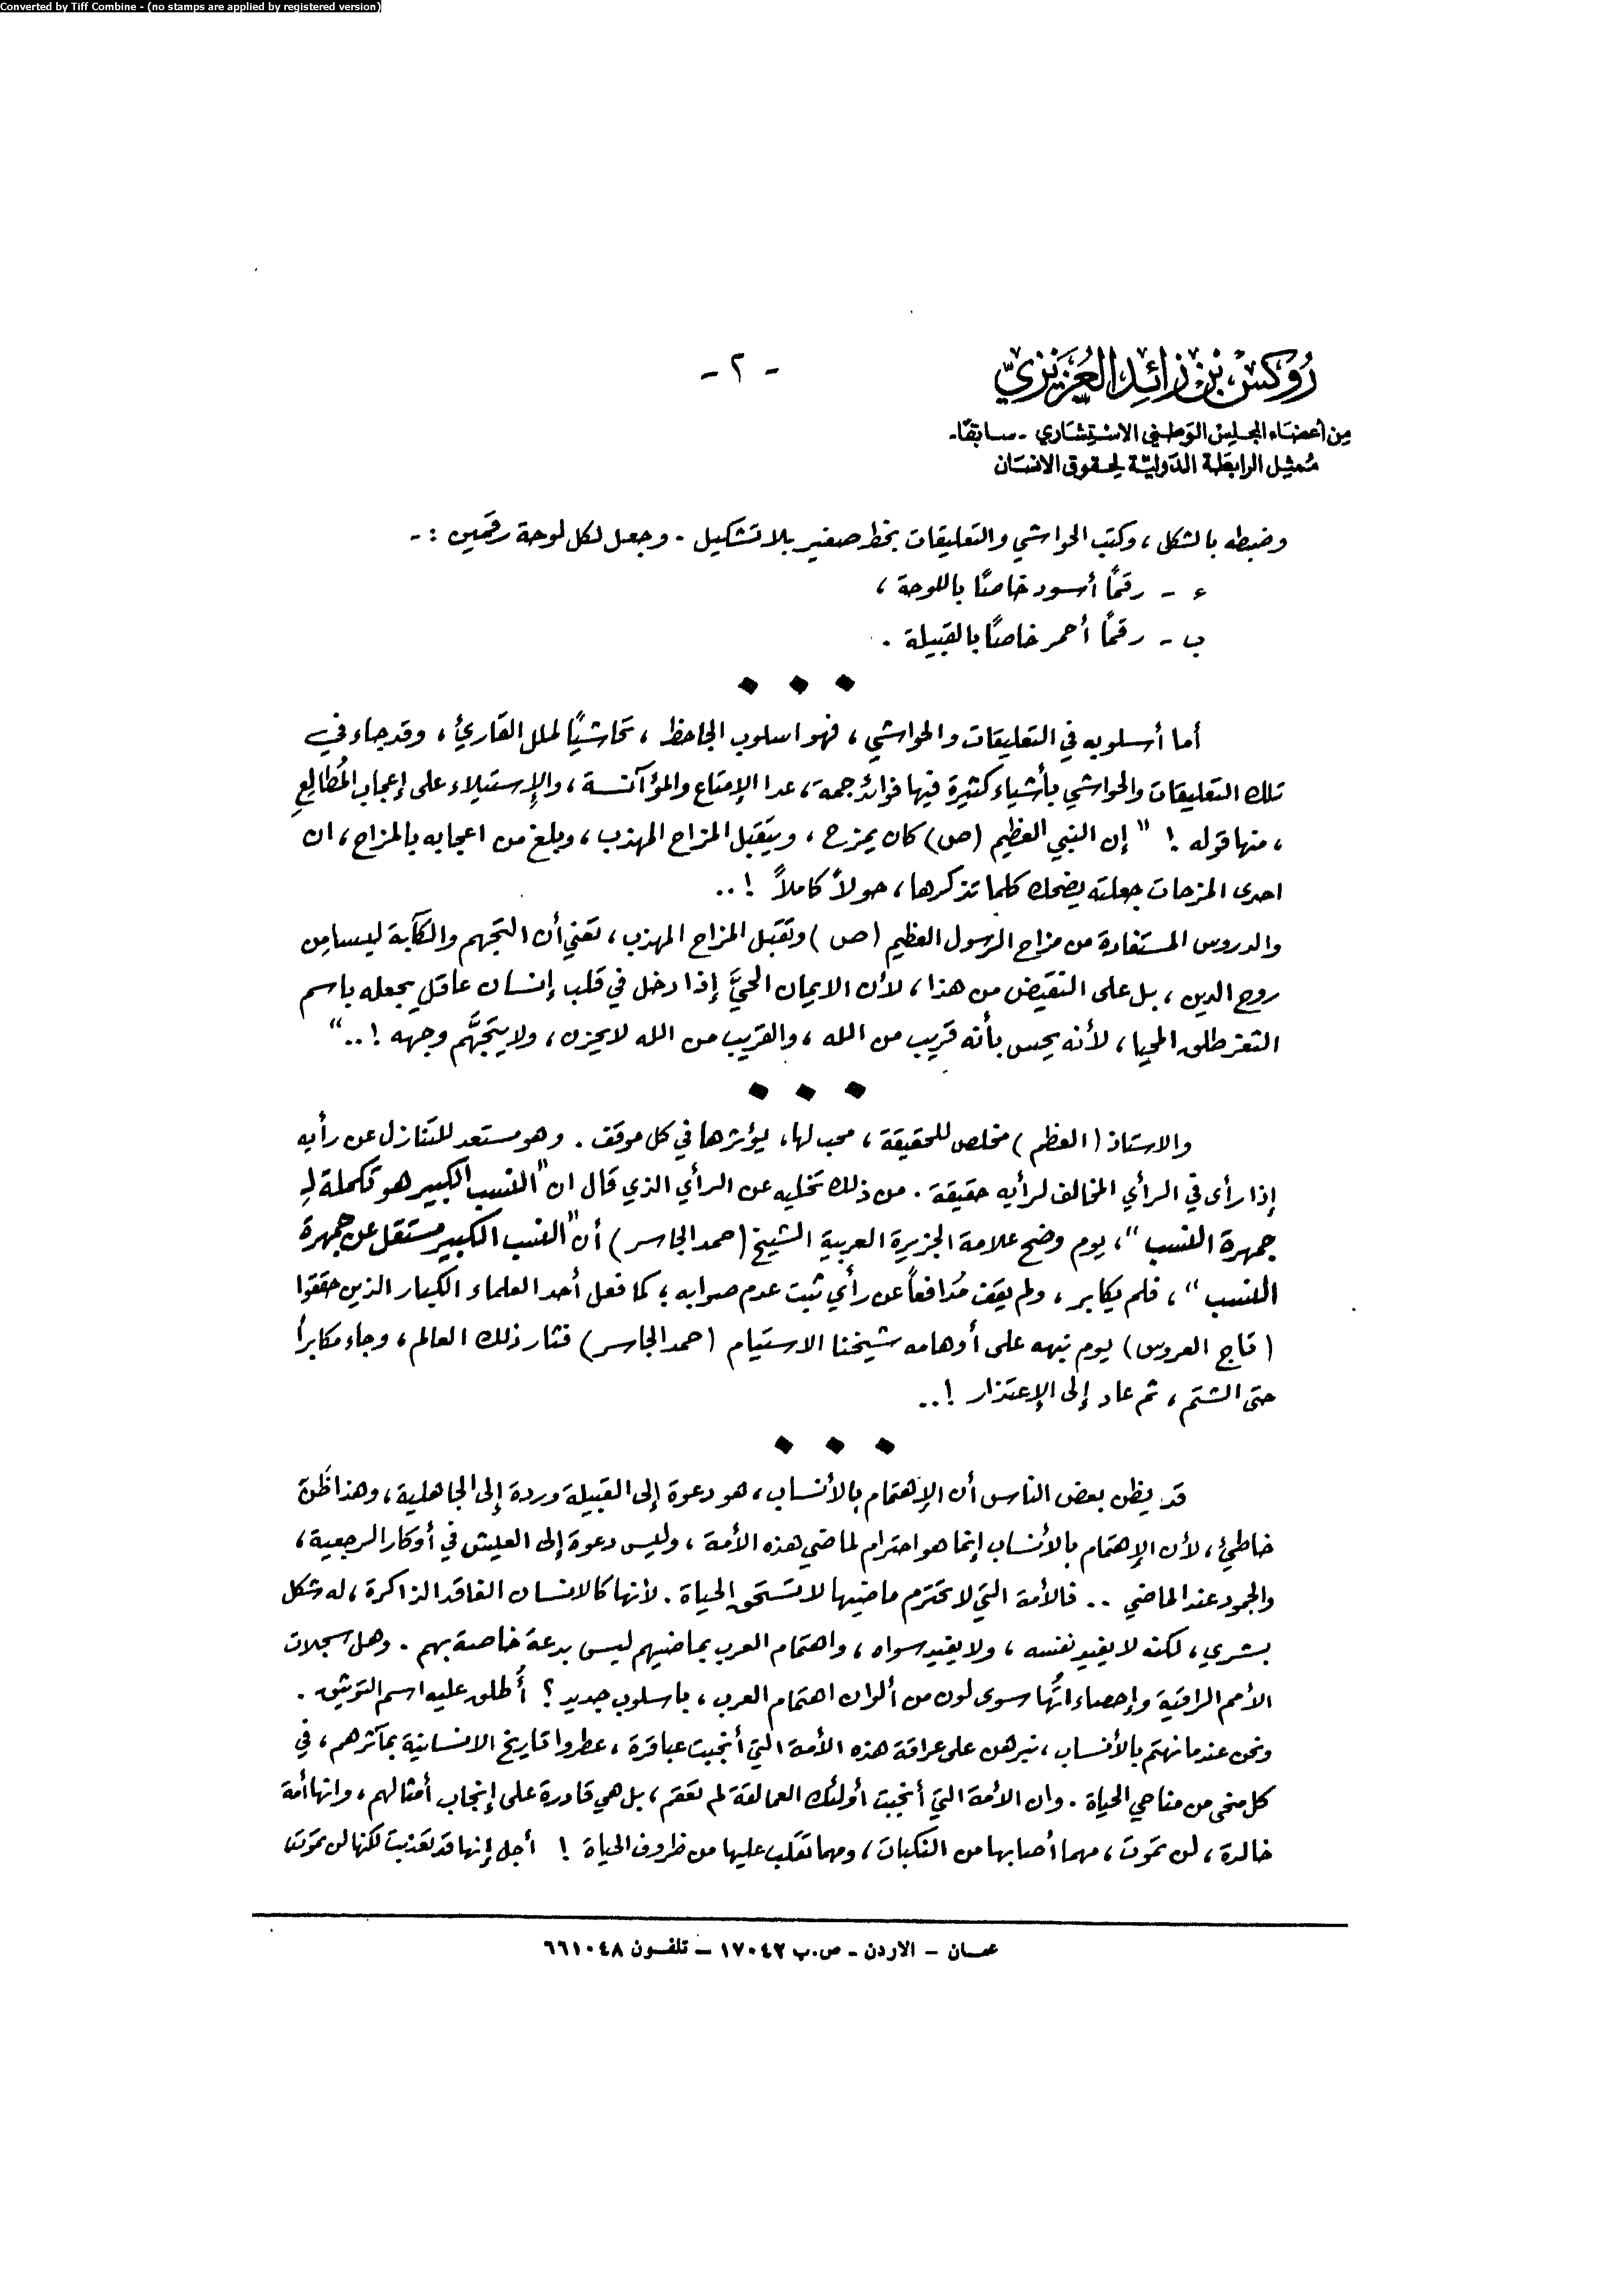 Converted by Tiff Combine - (no stamps are applied by registered version)
- ٢ -
رُوكس بن زائد العُزَيزيّ
مِن أعضَاء المجلِس الوَطني الاسْتِشَاري - سَابقًا -
مُمثِل الرابطَة الدَوليّة لحقوق الانسَان
وضبطه بالشكل، وكتب الحواشي والتعليقات بخط صغير بلا تشكيل. وجعل لكل لوحة رقمَين :-
ء - رقمًا أسود خاصًا باللوحة ،
ب - رقمًا أحمر خاصًا بالقبيلة .
أما أسلوبه في التعليقات والحواشي ، فهو اسلوب الجاحظ ، تحاشيًا لملل القارئ ، وقد جاء في
تلك التعليقات والحواشي بأشياء كثيرة فيها فوائد جمة ، عدا الإمتاع والمؤآنسة ، والإستيلاء على إعجاب المُطالِعِ
، منها قوله ! " إن النبي العظيم (ص) كان يمزح ، ويتقبل المزاح المهذب ، وبلغ من اعجابه بالمزاح ، ان
احدى المزحات جعلته يضحك كلما تذكرها ، حولاً كاملاً !..
والدروس المستفادة من مزاح الرسول العظيم (ص) وتقبل المزاح المهذب ، تعني أن التجهم والكآبة ليسا مِن
روح الدين ، بل على النقيض من هذا ، لأن الايمان الحيَّ إذا دخل في قلب إنسان عاقل يجعله باسم
الثغر طلق المحيا ، لأنه يحس بأنه قريب من الله ، والقريب من الله لا يحزن ، ولا يتجهَّم وجهه !.."
والاستاذ (العظم) مخلص للحقيقة ، محب لها ، يؤثرها في كل موقف . وهو مستعد للتنازل عن رأيه
إذا رأى في الرأي المخالف لرأيه حقيقة . من ذلك تخليه عن الرأي الذي قال ان "النسب الكبير هو تكملة لِـ
جمهرة النسب" ، يوم وضح علامة الجزيرة العربية الشيخ (حمد الجاسر) أن "النسب الكبير مستقل عن جمهرة
النسب" ، فلم يكابر ، ولم يقف مُدافعاً عن رأي ثبت عدم صوابه ؛ كما فعل أحد العلماء الكبار الذين حققوا
(تاج العروس) يوم نبهه على أوهامه شيخنا الاستيام (حمد الجاسر) فثار ذلك العالم ، وجاء مكابراً
حتى الشتم ، ثم عاد إلى الإعتذار !..
قد يظن بعض الناس أن الإهتمام بالأنساب ، هو دعوة إلى القبيلة وردة إلى الجاهلية ، وهذا ظَنّ
خاطئ ، لأن الإهتمام بالأنساب إنما هو احترام لماضي هذه الأمة ، وليس دعوة إلى العيش في أوكار الرجعية ،
والجمود عند الماضي .. فالأمة التي لا تحترم ماضيها لا تستحق الحياة . لأنها كالانسان الفاقد الذاكرة ، له شكل
بشري ، لكنه لا يفيد نفسه ، ولا يفيد سواه ، واهتمام العرب بماضيهم ليس بدعة خاصة بهم . وهل سجلات
الأمم الراقية وإحصاءاتُها سوى لون من ألوان اهتمام العرب ، باسلوب جديد ؟ أُطلق عليه اسم التوثيق .
ونحن عندما نهتم بالأنساب ، نبرهن على عراقة هذه الأمة التي أنجبت عباقرة ، عطروا تاريخ الانسانية بمآثرهم ، في
كل منحى من مناحي الحياة . وان الأمة التي أنجبت أولئك العمالقة لم تعقم ، بل هي قادرة على إنجاب أمثالهم ، وانها أمة
خالدة ، لن تموت ، مهما أصابها من النكبات ، ومهما تقلب عليها من ظروف الحياة ! أجل إنها قد تعذبت لكنها لن تموت
عمـان - الاردن - ص.ب ١٧٠٤٢ - تلفـون ٦٦١٠٤٨